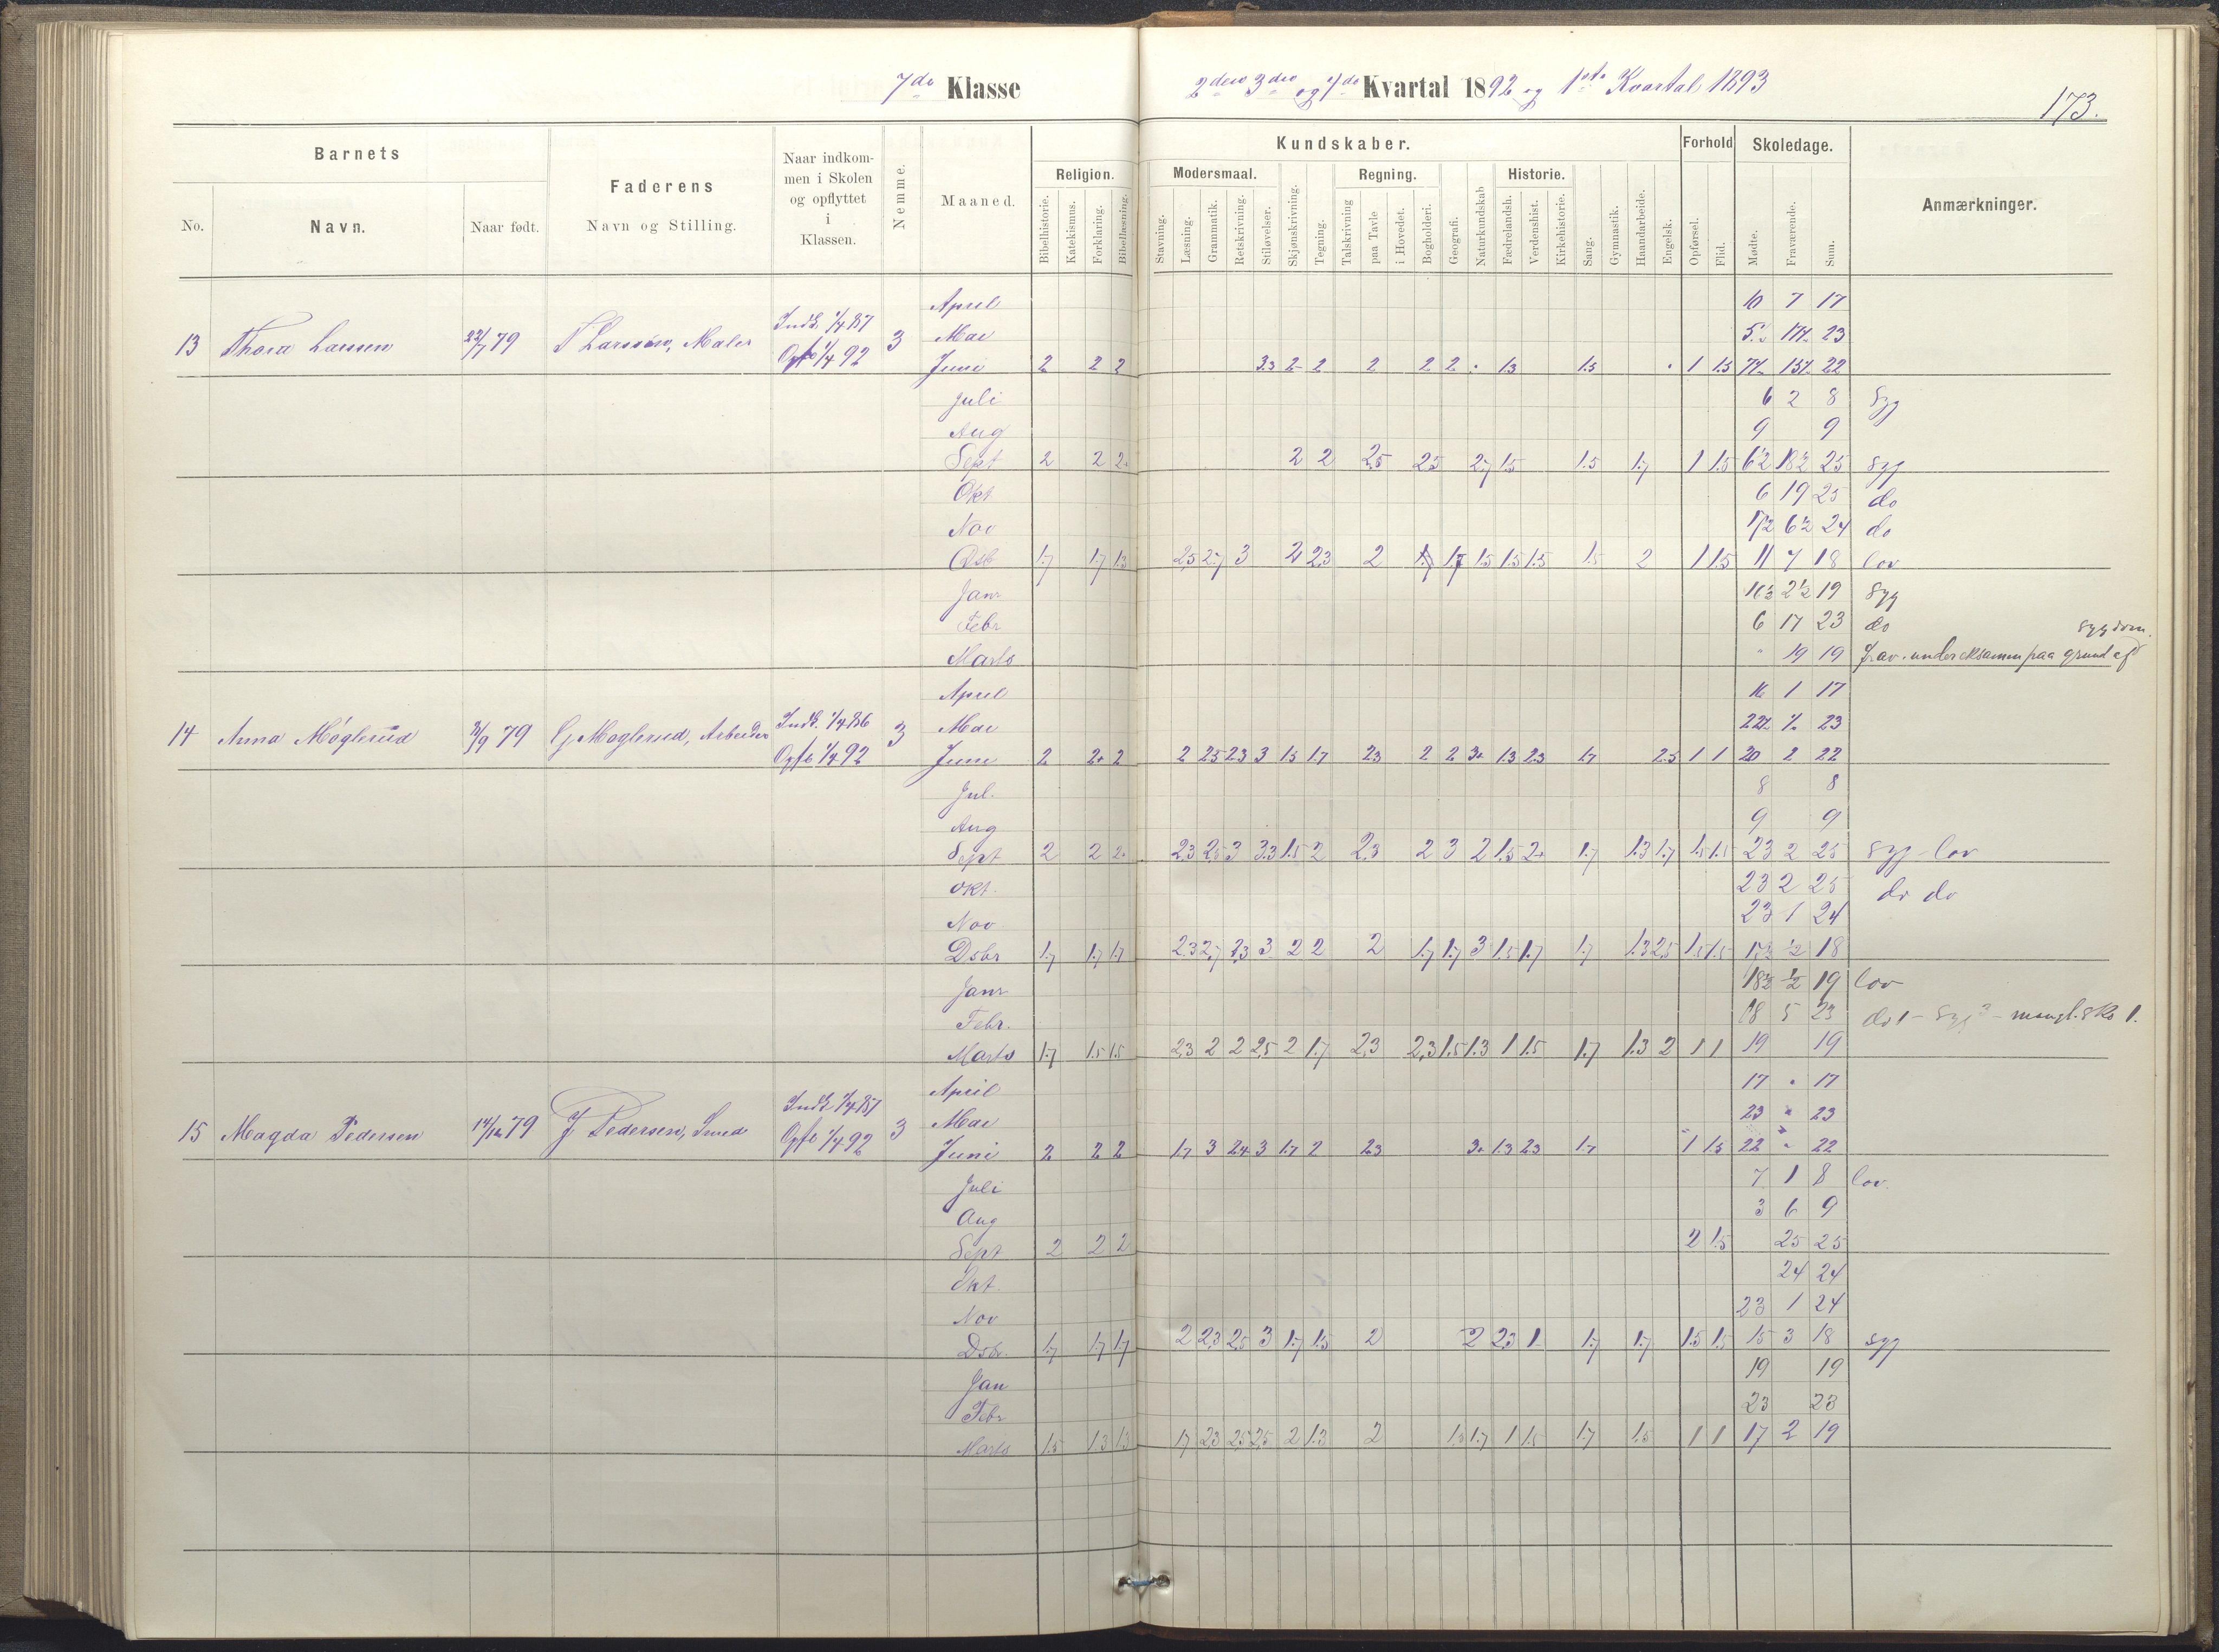 7de Klasse
2den 3die og 4de Kvartal 1892 og 1ste Kvartal 1893
173.
Barnets
Faderens
Naar indkommen i Skolen og opflyttet i Klassen.
Nemme.
Maaned.
Religion.
Kundskaber.
Modersmaal.
Regning.
Historie.
Forhold
Skoledage.
Anmærkninger.
No. Navn. Naar født. Navn og Stilling.
Bibelhistorie. Katekismus. Forklaring. Bibellæsning. Stavning. Læsning. Grammatik. Retskrivning. Stiløvelser. Skjønskrivning. Tegning. Talskrivning paa Tavle i Hovedet. Bogholderi. Geografi. Naturkundskab Fædrelandsh. Verdenshist. Kirkehistorie. Sang. Gymnastik. Haandarbeide. Engelsk. Opførsel. Flid. Mødte. Fraværende. Sum.
April 10 7 17
Indk. 1/4 87
13 Thora Larssen 79 Larssen, Maler 3 Mai 23
Opfl 1/4 92 Juni 2 2 2 3.3 2 2 2 2 2 1.3 1.5 1 1.5 22
Juli 6 2 8 Syg
Aug 9 9
Sept 2 2 2 2 2 2.5 2.5 2.7 1.5 1.5 1.7 1 1.5 6½ 18½ 25 Syg
Okt 6 19 25 do
Nov 17½ 6½ 24 do
Dsb 1.7 1.7 1.3 2.5 2.7 3 2 2.3 2 1.7 1.7 1.5 1.5 1.5 1.5 2 1 1.5 11 7 18 lov
Janr 16½ 2½ 19 Syg
Febr 6 17 23 do
Marts " 19 19 frav. under eksamen paa grund af sygdom.
April 16 1 17
Indk. 1/4 86
14 Anna Møglerud 79 Møglerud, Arbeider 3 Mai 22½ ½ 23
Opfl 1/4 92 Juni 2 2+ 2 2 2.5 2.3 3 1.5 1.7 2.3 2 2 3+ 1.3 2.3 1.7 2.5 1 1 20 2 22
Jul. 8 8
Aug 9 9
Sept 2 2 2+ 2.3 2.5 3 3.3 1.5 2 2.3 2 3 2 1.5 2+ 1.7 1.3 1.7 1.5 1.5 23 2 25 Syg - lov
Okt. 23 2 25 do do
Nov 23 1 24
Dsbr 1.7 1.7 1.7 2.3 2.7 2.3 3 2 2 2 1.7 1.7 3 1.5 1.7 1.7 1.3 2.5 1.5 1.5 17½ ½ 18
Janr 18½ ½ 19 lov
Febr. 18 5 23 do 1 - Syg 3 - mangl. sko 1.
Marts 1.7 1.5 1.5 2.3 2 2 2.5 2 1.7 2.3 2.3 1.5 1.3 1 1.5 1.7 1.3 2 1 1 19 19
April 17 " 17
Indk 1/4 87
15 Magda Pedersen 14/12 79 J Pedersen, Smed 3 Mai 23 " 23
Opfl 1/4 92 Juni 2 2 2 1.7 3 2.4 3 1.7 2 2.3 3+ 1.3 2.3 1.7 1 1.5 22 " 22
Juli 7 1 8 lov.
Aug 3 6 9
Sept 2 2 2 2 1.5 25 25
Okt. 24 24
Nov 23 1 24
Dsbr. 1.7 1.7 1.7 2 2.3 2.5 3 1.7 1.5 2 2 2.3 1 1.7 1.7 1.5 1.5 15 3 18 syg
Jan 19 19
Febr 23 23
Marts 1.5 1.3 1.3 1.7 2.3 2.5 2.5 2 1.3 2 1.5 1.7 1 1.5 1.7 1.5 1 1 17 2 19